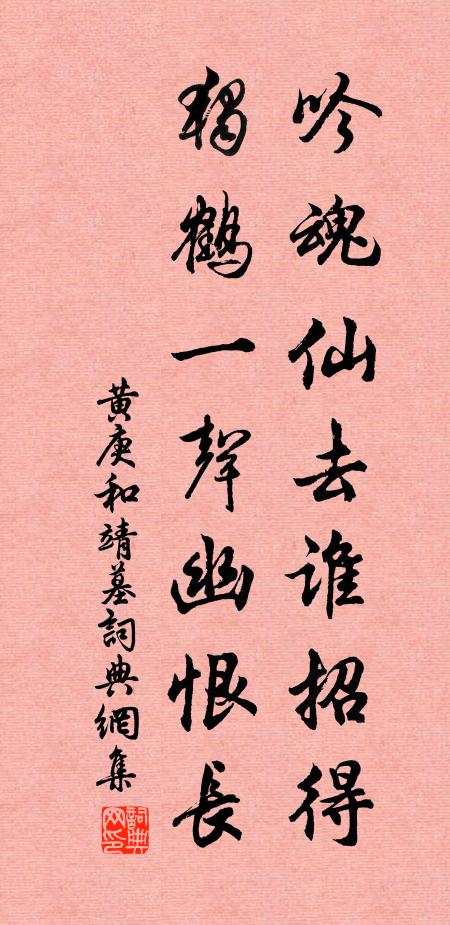 吟魂仙去谁招得
独鹤一声幽恨长
黄庚和靖墓詞典網集
詞典网印